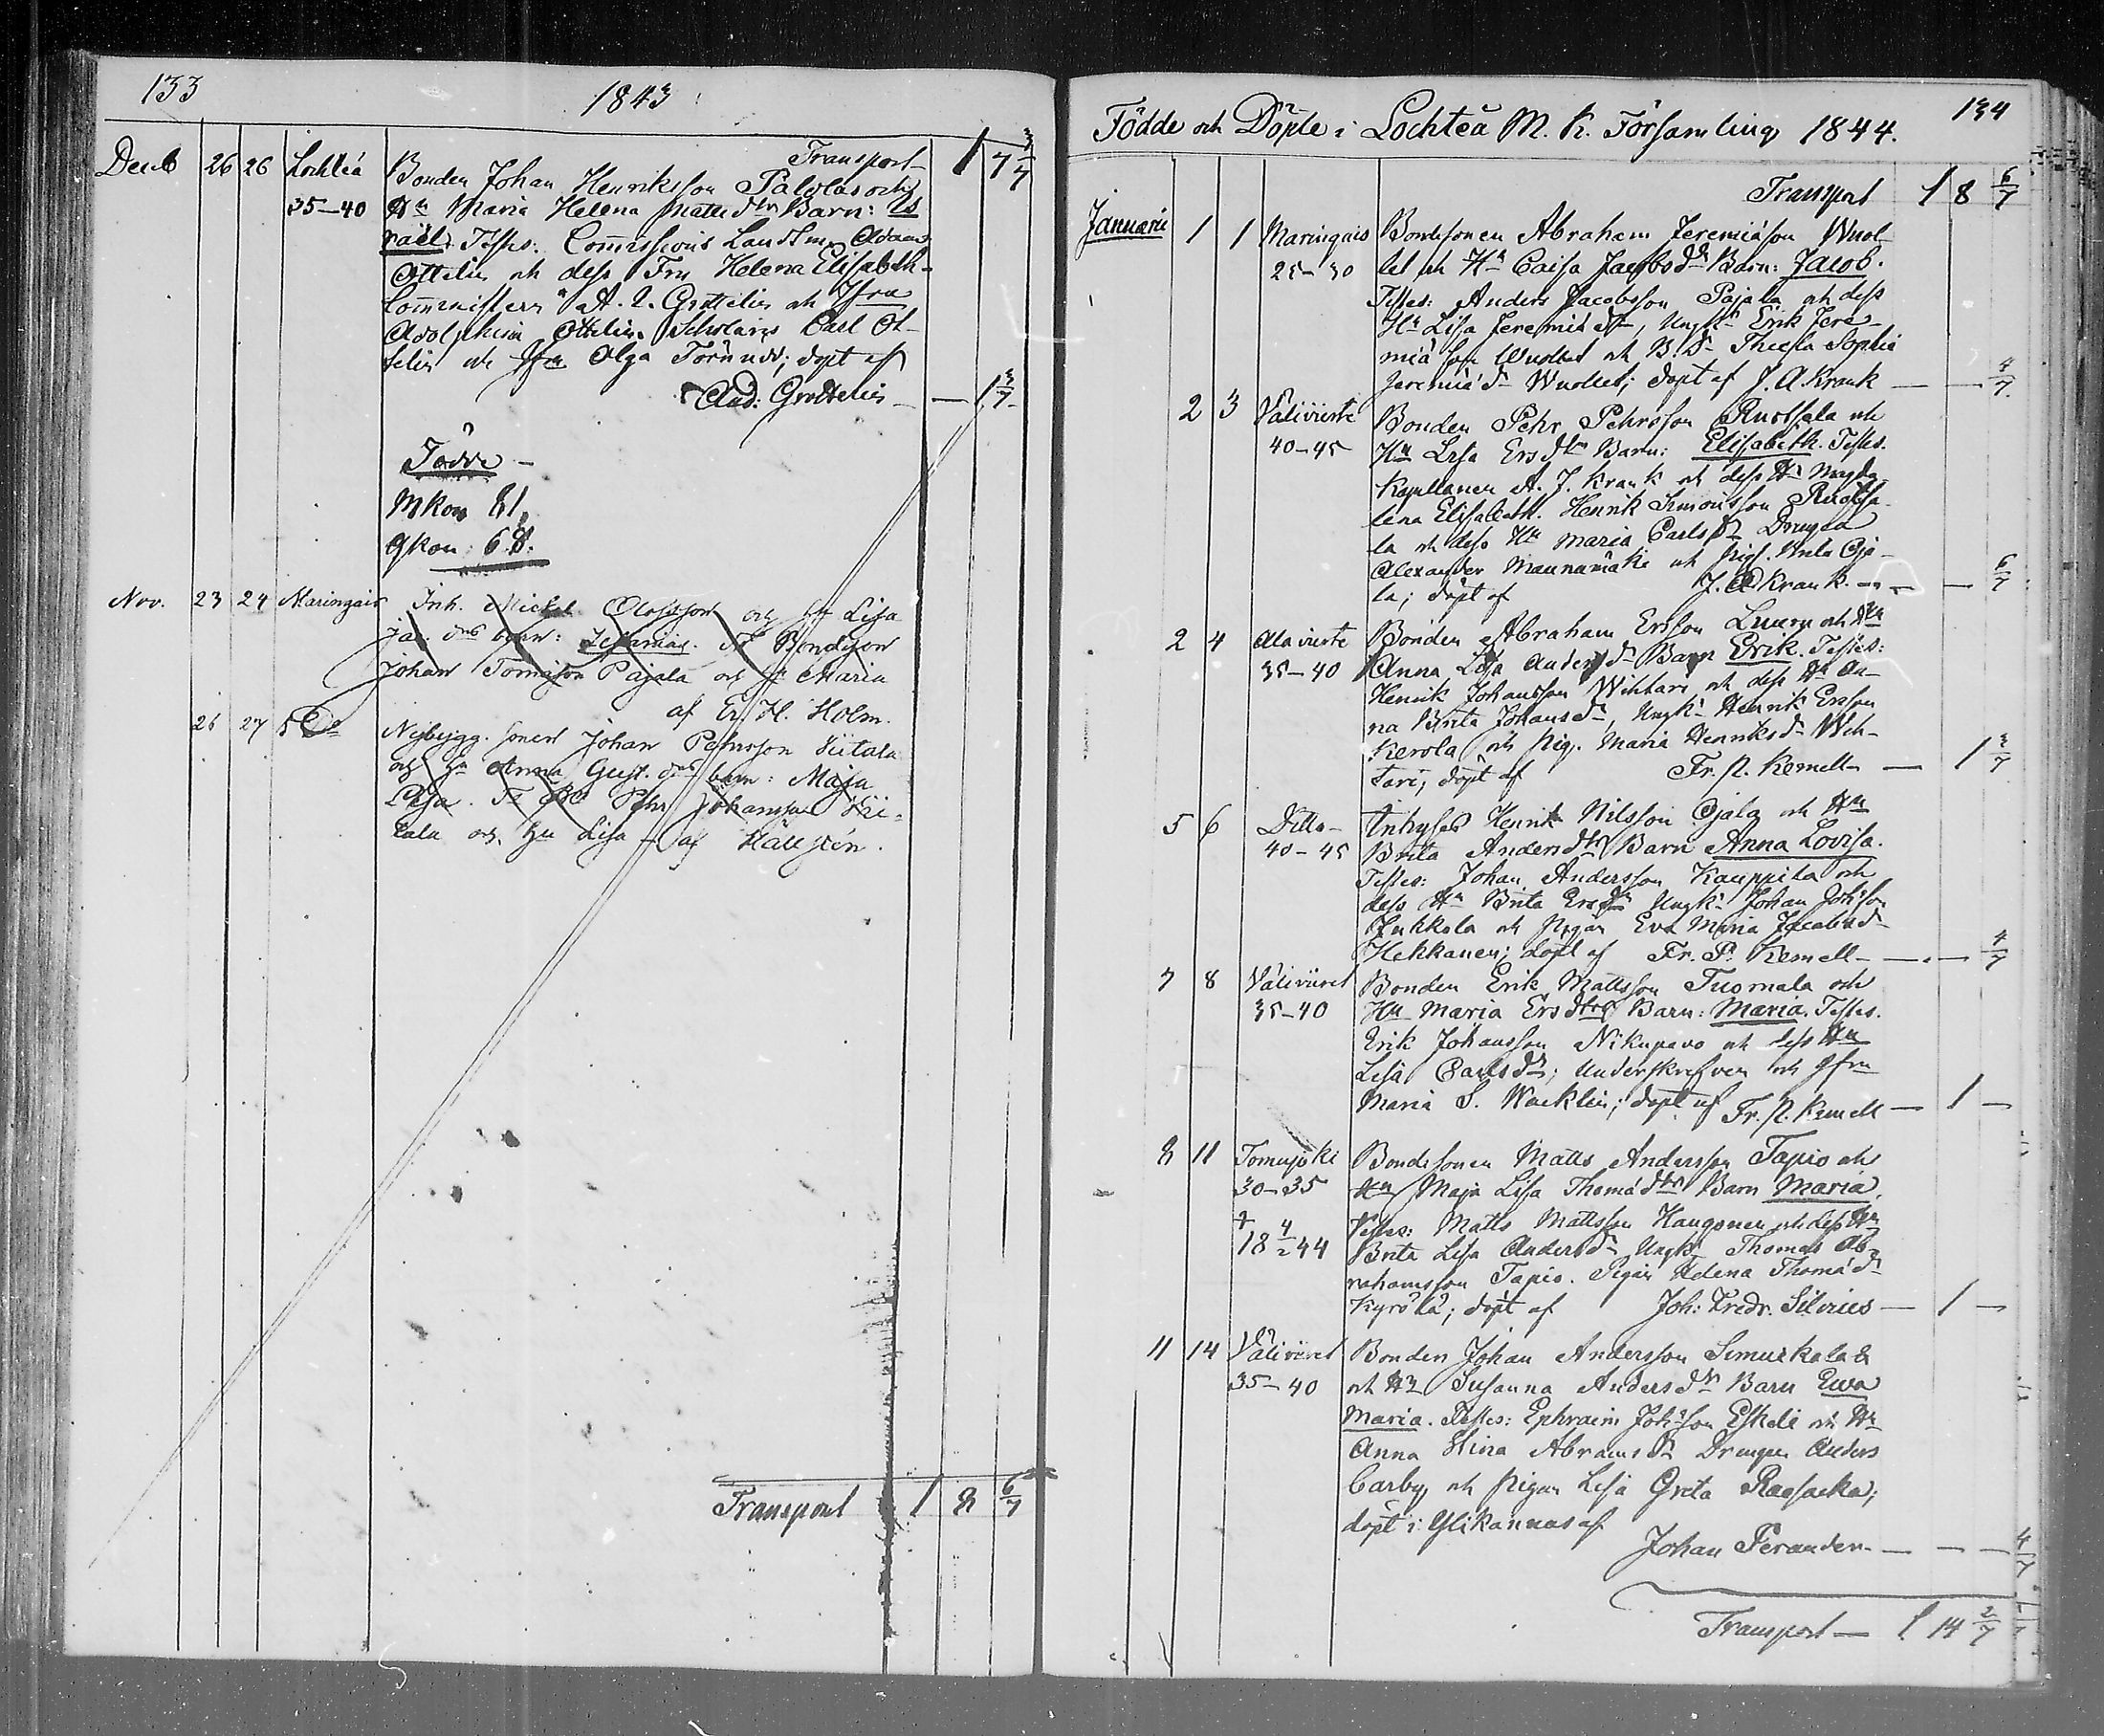 133
1843
Transport 1 7 3/7
Decb 26 26 Lochteå Bonden Johan Henriksson Pålolas och
35–40 Hu Maria Helena Matts dtr Barn: Is
rael. Testes: Commissions Landtm. Adam
Ottelin och dess Fru Helena Elisabeth
Comministern A. L. Grottelin och Jfru
Adolphina Ottelin, Scholaris Carl Ot-
telin och Jfru Olga Törnudd; döpt af
And: Grottelius — 1 3/7
Födde
Mkön 81.
Qkön: 68.
Nov. 23 24 Maringais Inh. Mickel Olofsson och h. Lisa
Jac. dtrs barn: Zefanias. Ts Bondeson
Johan Tomasson Pajala och h. Maria
af Er. H. Holm.
26 27 Do Nybygg. sonen Johan Pehrsson Siitala
och hu Anna Gust. dtrs barn: Maja
Lisa. Ts Pehr Johansson Sii-
tala och hu Lisa — af Hällstén.
Transport 1 8 6/7
134
Födde och Döpte i Lochteå M. K. Församling 1844.
Transport 1 8 6/7
Januarii 1 1 Maringais Bondesonen Abraham Jeremiæson Wuol
25–30 let och Hu Caisa Jacobsdr Barn: Jacob.
Testes: Anders Jacobsson Pajala och dess
Hu Lisa Jeremiædr, Ungk. Erik Jere-
miæson Wuollet och B. Dr Thecla Sophia
Jeremiædr Wuollet; döpt af J. A. Krank — — 4/7
2 3 Välivirete Bonden Pehr Pehrsson Ruotsala och
40–45 Hu Lisa Ersdtrs Barn: Elisabeth. Testes.
Kapellanen A. J. Krank och dess Hu Magda
lena Elisabeth. Henrik Simonsson Ruotsa-
la och dess Hu Maria Carlsdr Drengen
Alexander Maunamäki och Pig. Brita Oja-
la; döpt af J. A. Krank. — — 6/7
2 4 Alavirete Bonden Abraham Ersson och Hu
35–40 Anna Lisa Andersdr Barn Erik. Testes:
Henrik Johansson Wihtari och dess Hu An-
na Brita Johansdr, Ungk. Henrik Ersson
Kerola och Pig. Maria Henriksdr Wih-
tari; döpt af Fr. P. Kemell — 1 3/7
5 6 Ditto Inhyses Henrik Nilsson Ojala och Hu
40–45 Brita Andersdtrs Barn Anna Lovisa.
Testes: Johan Andersson Kauppila och
dess Hu Brita Ersdr Ungk. Johan Johsson
Junkkala och Pigan Eva Maria Jacobsdr
Hekkanen; döpt af Fr. P. Kemell — — 4/7
7 8 Väliviret Bonden Erik Mattsson Tuomala och
35–40 Hu Maria Ersdtrs Barn: Maria. Testes.
Erik Johansson Nikupavo och dess Hu
Lisa Carlsdr; Underskrefven och Jfru
Maria S. Wacklin; döpt af Fr. P. Kemell — 1 —
8 11 Tomujoki Bondesonen Matts Andersson Tapio och
30–35 Hu Maja Lisa Thomædtrs Barn Maria.
† 18 4/2 44 Testes: Matts Mattsson Haugonen och dess Hu
Brita Lisa Andersdr Ungk. Thomas Ab-
rahamsson Tapio. Pigan Helena Thomædr
Kyrölä; döpt af Joh: Fredr. Silvius — 1 —
11 14 Väliviret Bonden Johan Andersson Simuskala
35–40 och Hu Susanna Andersdr Barn Ewa
Maria. Testes: Ephraim Johsson Eskeli och Hu
Anna Stina Abramsdr Drengen Anders
Carby och Pigan Lisa Greta Raasacka;
döpt i Ylikannus af
Johan Perander — — — 4/7
Transport — 1 14 2/7